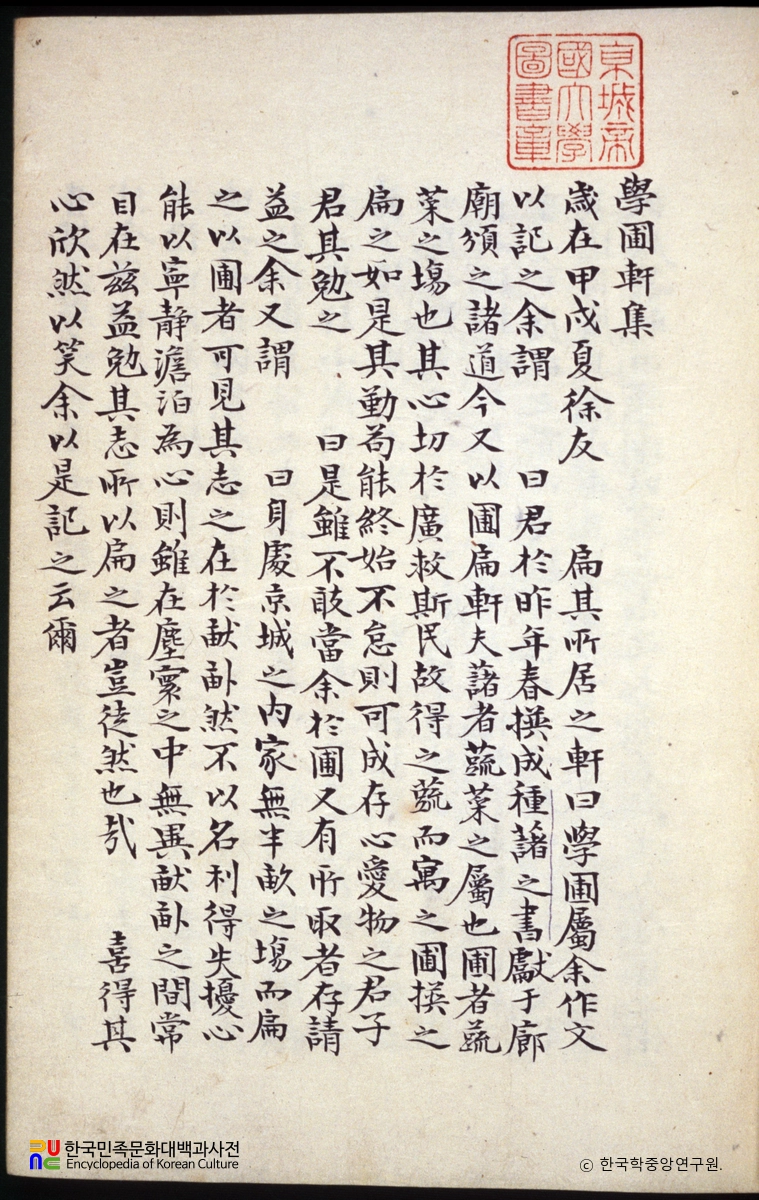 京城帝
國大學
圖書章
學圃軒集
歲在甲戍夏徐友 扁其所居之軒曰學圃屬余作文
以記之余謂 曰君於昨年春撰成種藷之書獻于廊
廟頒之諸道今又以圃扁軒夫藷者蔬菜之屬也圃者蔬
菜之塲也其心切於廣救斯民故得之蔬而寓之圃撰之
扁之如是其勤苟能終始不怠則可成存心愛物之君子
君其勉之 曰是雖不敢當余於圃又有所取者存請
益之余又謂 曰身處京城之內家無半畝之塲而扁
之以圃者可見其志之在於畎畝然不以名利得失擾心
能以寧靜澹泊為心則雖在塵寰之中無異畎畝之間常
目在茲益勉其志所以扁之者豈徒然也哉 喜得其
心欣然以笑余以是記之云爾
한국민족문화대백과사전
Encyclopedia of Korean Culture
ⓒ 한국학중앙연구원.